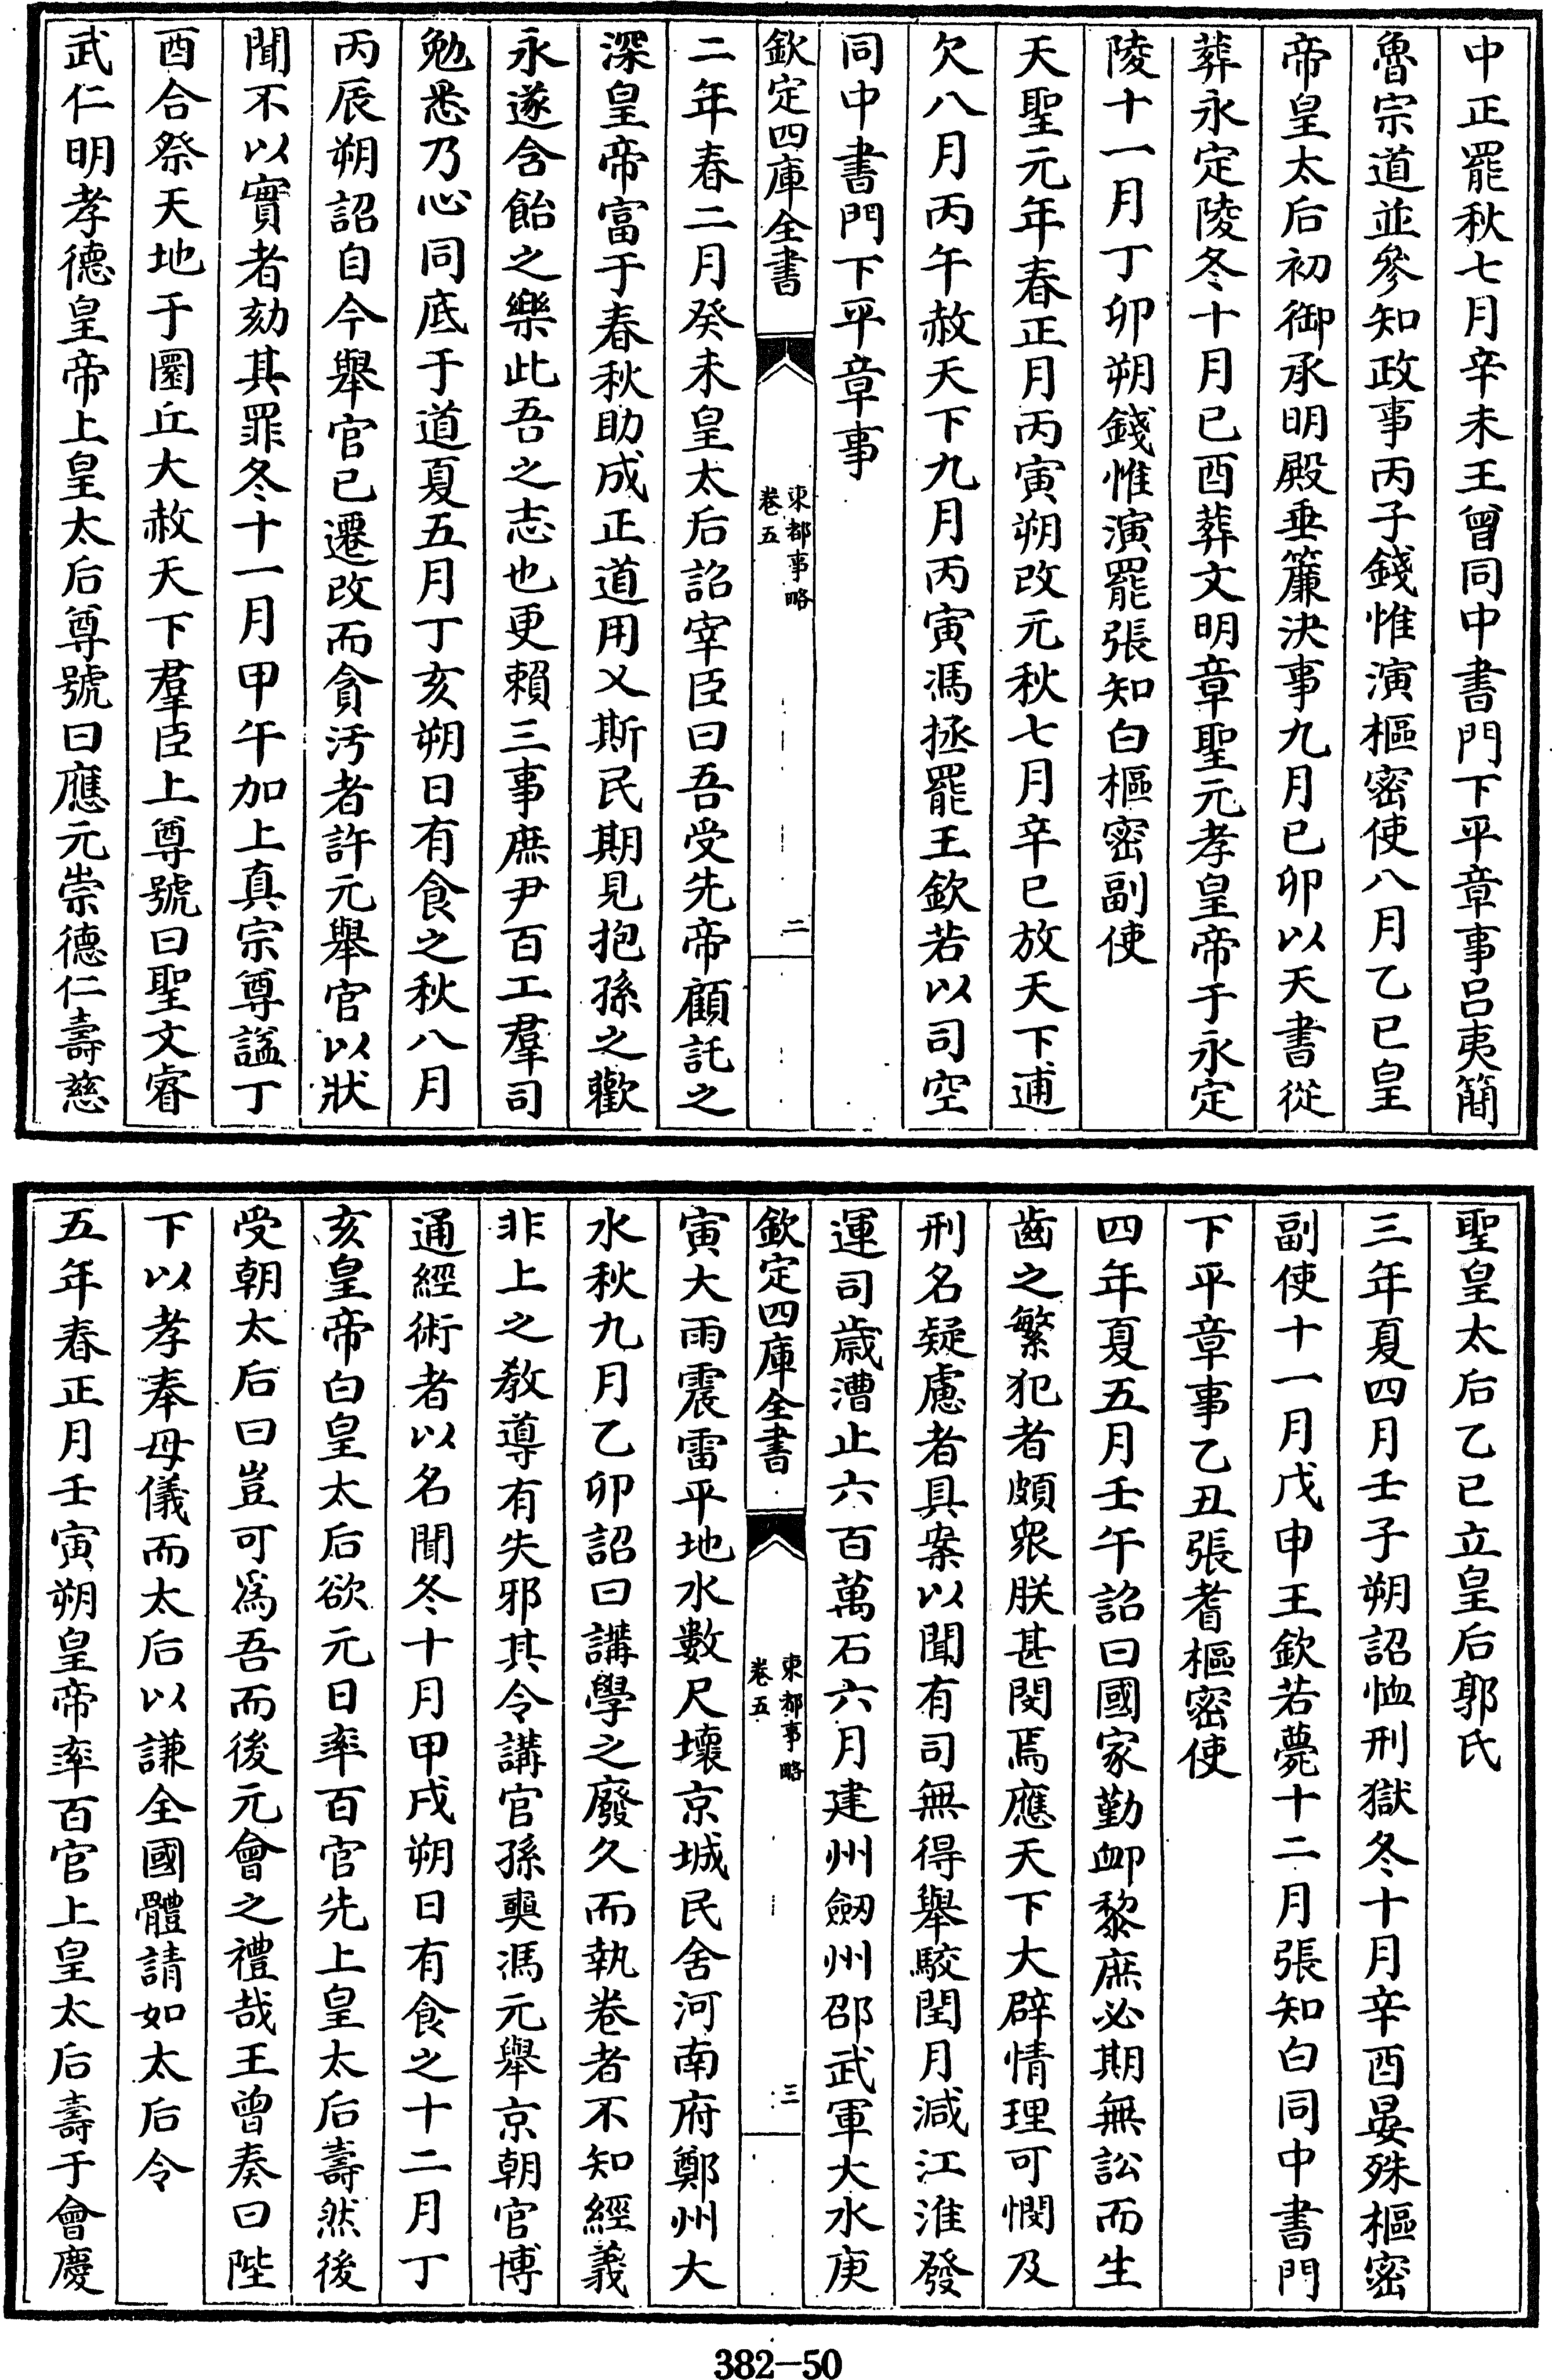 中正罷秋七月辛未王曾同中書門下平章事吕夷簡
魯宗道並參知政事丙子錢惟演樞密使八月乙巳皇
帝皇太后初御承明殿垂簾決事九月己卯以天書從
葬永定陵冬十月己酉葬文明章聖元孝皇帝于永定
陵十一月丁卯朔錢惟演罷張知白樞密副使
天聖元年春正月丙寅朔改元秋七月辛巳放天下逋
欠八月丙午赦天下九月丙寅馮拯罷王欽若以司空
同中書門下平章事
欽定四庫全書
東都事略
卷五
二
二年春二月癸未皇太后詔宰臣曰吾受先帝顧託之
深皇帝富于春秋助成正道用乂斯民期見抱孫之歡
永遂含飴之樂此吾之志也更賴三事庶尹百工羣司
勉悉乃心同底于道夏五月丁亥朔日有食之秋八月
丙辰朔詔自今舉官已遷改而貪汚者許元舉官以狀
聞不以實者劾其罪冬十一月甲午加上真宗尊諡丁
酉合祭天地于圜丘大赦天下羣臣上尊號曰聖文睿
武仁明孝德皇帝上皇太后尊號曰應元崇德仁壽慈
聖皇太后乙巳立皇后郭氏
三年夏四月壬子朔詔恤刑獄冬十月辛酉晏殊樞密
副使十一月戊申王欽若薨十二月張知白同中書門
下平章事乙丑張耆樞密使
四年夏五月壬午詔曰國家勤卹黎庶必期無訟而生
齒之繁犯者頗衆朕甚閔焉應天下大辟情理可憫及
刑名疑慮者具案以聞有司無得舉駮閏月減江淮發
運司歲漕止六百萬石六月建州劔州邵武軍大水庚
欽定四庫全書
東都事略
卷五
三
寅大雨震雷平地水數尺壞京城民舍河南府鄭州大
水秋九月乙卯詔曰講學之廢久而執卷者不知經義
非上之教導有失邪其令講官孫奭馮元舉京朝官博
通經術者以名聞冬十月甲戌朔日有食之十二月丁
亥皇帝白皇太后欲元日率百官先上皇太后壽然後
受朝太后曰豈可爲吾而後元會之禮哉王曾奏曰陛
下以孝奉母儀而太后以謙全國體請如太后令
五年春正月壬寅朔皇帝率百官上皇太后壽于會慶
382-50